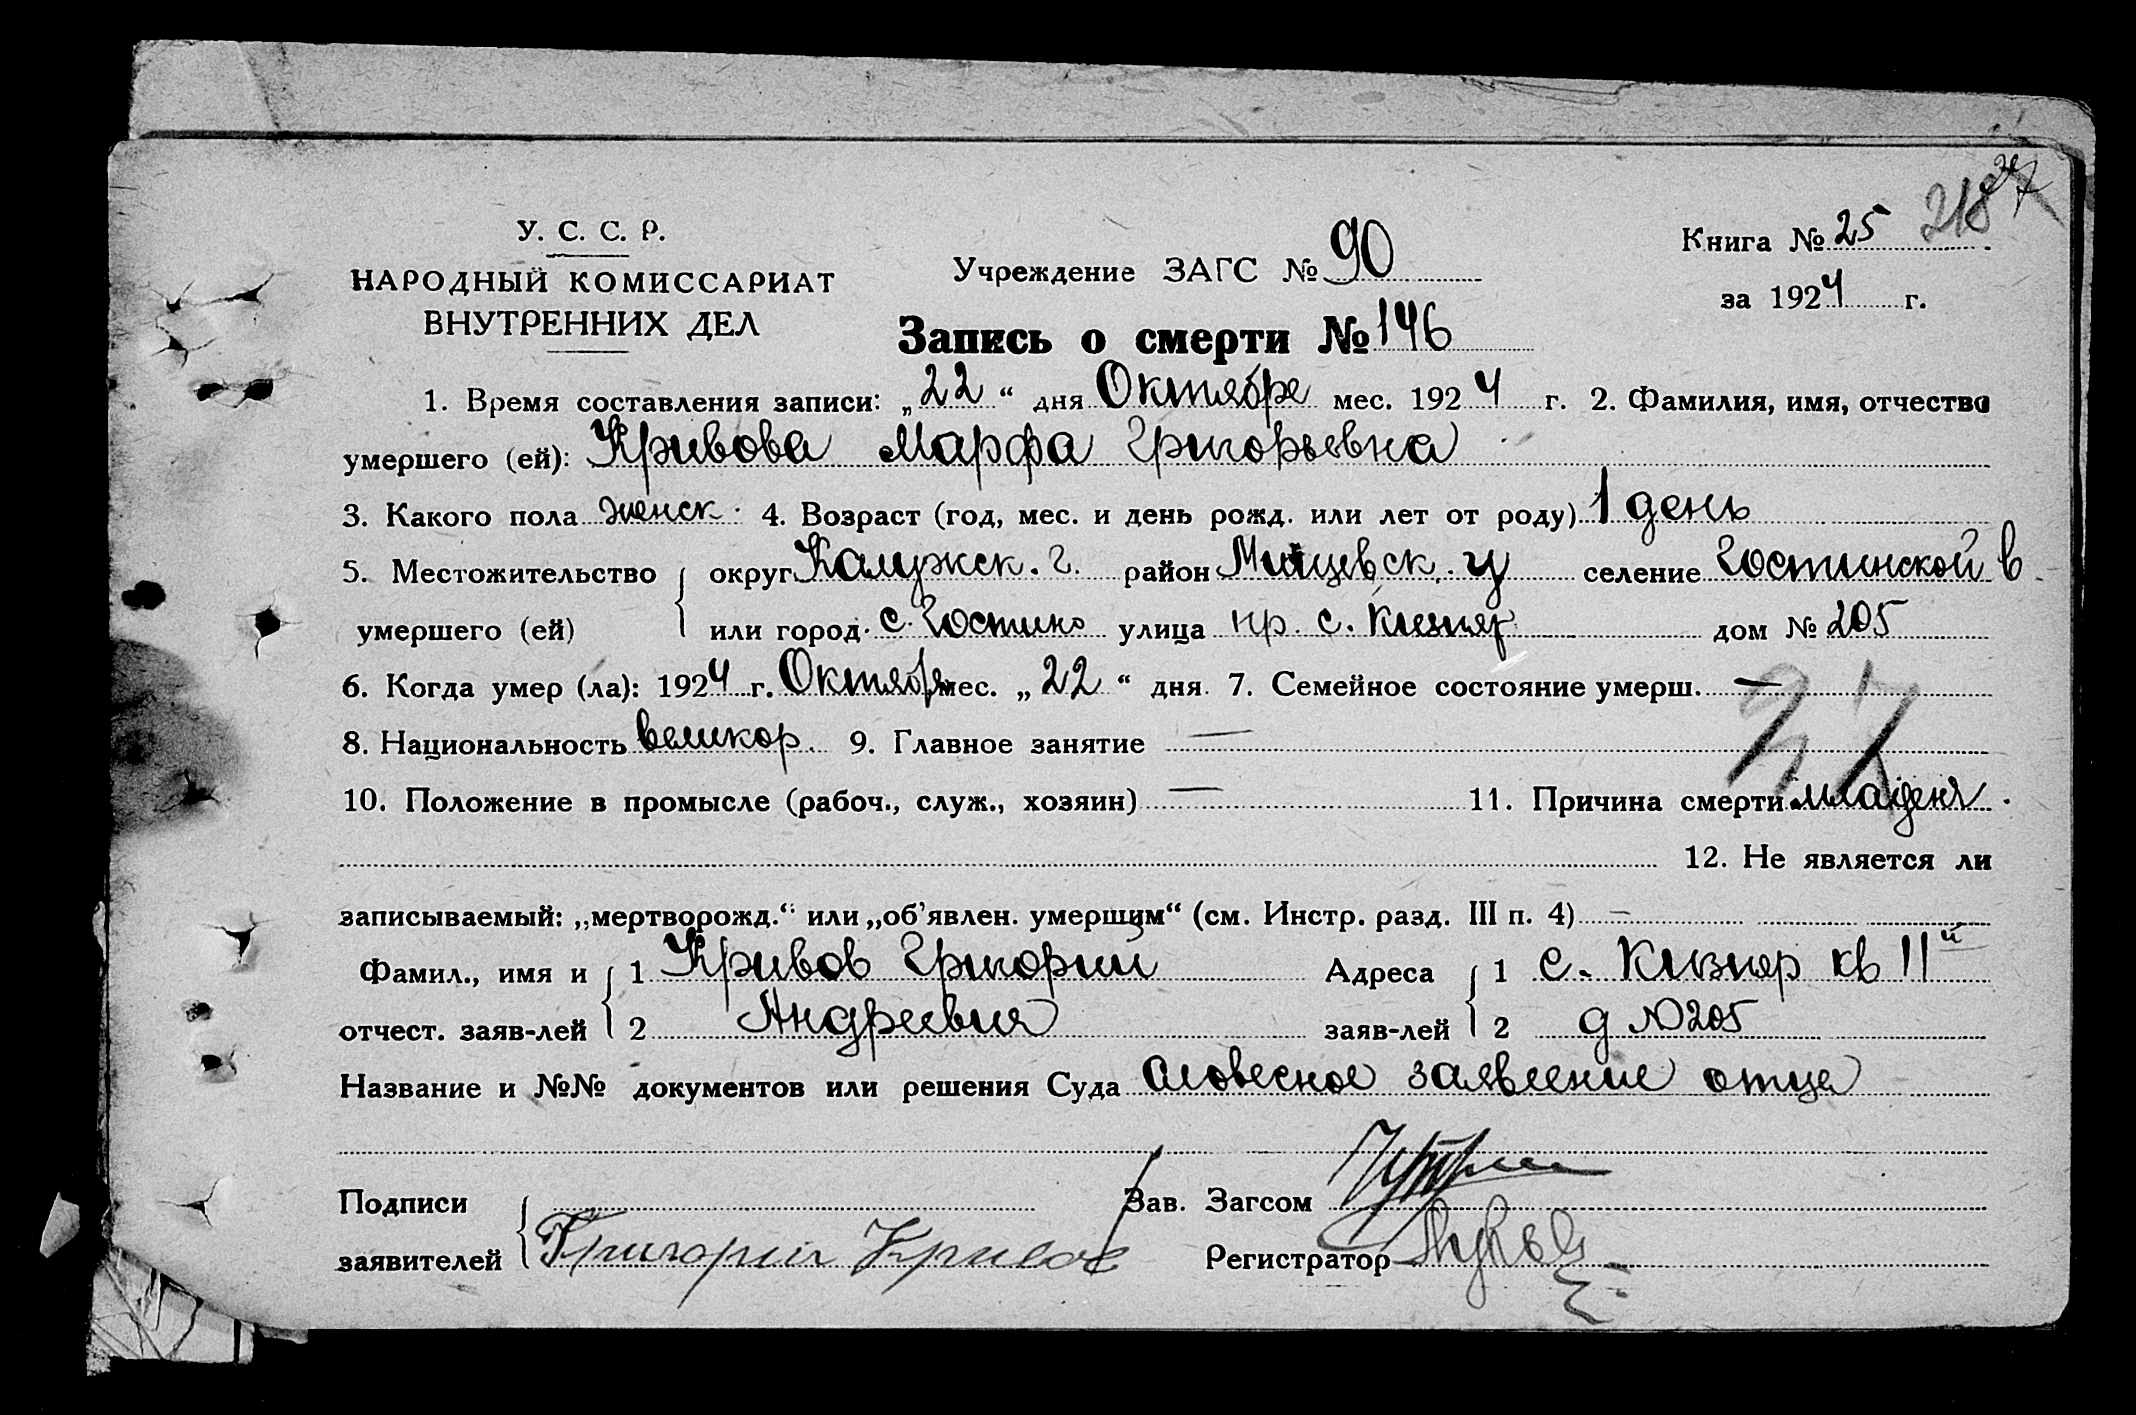 218
У. С. С. Р.
НАРОДНЫЙ КОМИССАРИАТ
ВНУТРЕННИХ ДЕЛ
Учреждение ЗАГС № 90
Книга № 25
за 1924 г.
Запись о смерти № 146
1. Время составления записи: „22“ дня Октября мес. 1924 г. 2. Фамилия, имя, отчество
умершего (ей): Кривова Марфа Григорьевна
3. Какого пола женск. 4. Возраст (год, мес. и день рожд. или лет от роду) 1 день
5. Местожительство округ Калужск. г. район Мищевск. у селение Гостинской в
умершего (ей) или город с. Гостино улица пр. с. Кизияр дом № 205
6. Когда умер (ла): 1924 г. Октября мес. „22“ дня 7. Семейное состояние умерш. —
8. Национальность великор. 9. Главное занятие —
10. Положение в промысле (рабоч., служ., хозяин) — 11. Причина смерти младен.
12. Не является ли
записываемый: „мертворожд.“ или „об’явлен. умершим“ (см. Инстр. разд. III п. 4) —
Фамил., имя и 1 Кривов Григорий Адреса 1 с. Кизияр кв 11й
отчест. заяв-лей 2 Андреевич заяв-лей 2 д № 205
Название и №№ документов или решения Суда словесное заявление отца
Подписи Зав. Загсом
заявителей Григорий Кривов Регистратор